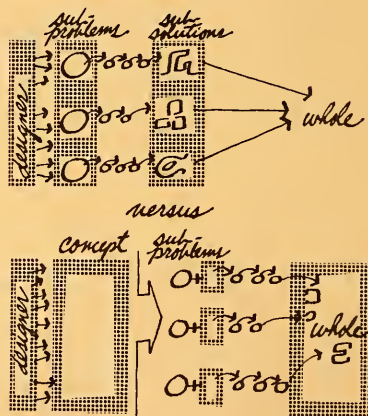 sub-
problems
sub-
solutions
designer
whole
versus
concept
sub-
problems
designer
whole